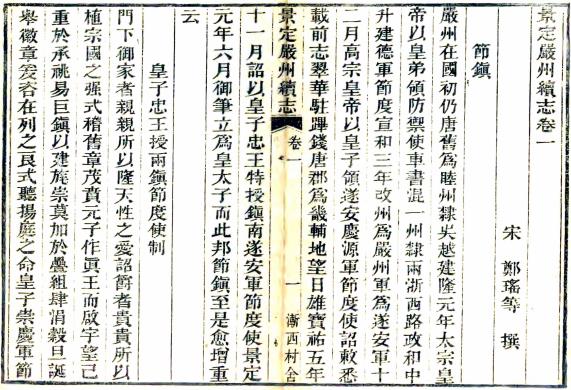 景定嚴州續志卷一
宋 鄭瑤等 撰
節鎮
嚴州在國初仍唐舊爲睦州隸吳越建隆元年太宗皇
帝以皇弟領防禦使車書混一州隸兩浙西路政和中
升建德軍節度宣和三年改州爲嚴州軍爲遂安軍十
二月高宗皇帝以皇子領遂安慶源軍節度使詔敕悉
載前志翠華駐蹕錢唐郡爲畿輔地望日雄寶祐五年
景定嚴州續志 卷一 一 漸西村舍
十一月詔以皇子忠王特授鎮南遂安軍節度使景定
元年六月御筆立爲皇太子而此邦節鎮至是愈增重
云
皇子忠王授兩鎮節度使制
門下御家者親親所以隆天性之愛詔爵者貴貴所以
植宗國之强式稽舊章茂賁元子作眞王而啟字望已
重於承祧易巨鎮以建旄崇莫加於疊組肆涓穀旦誕
舉徽章爰咨在列之良式聽揚庭之命皇子崇慶軍節